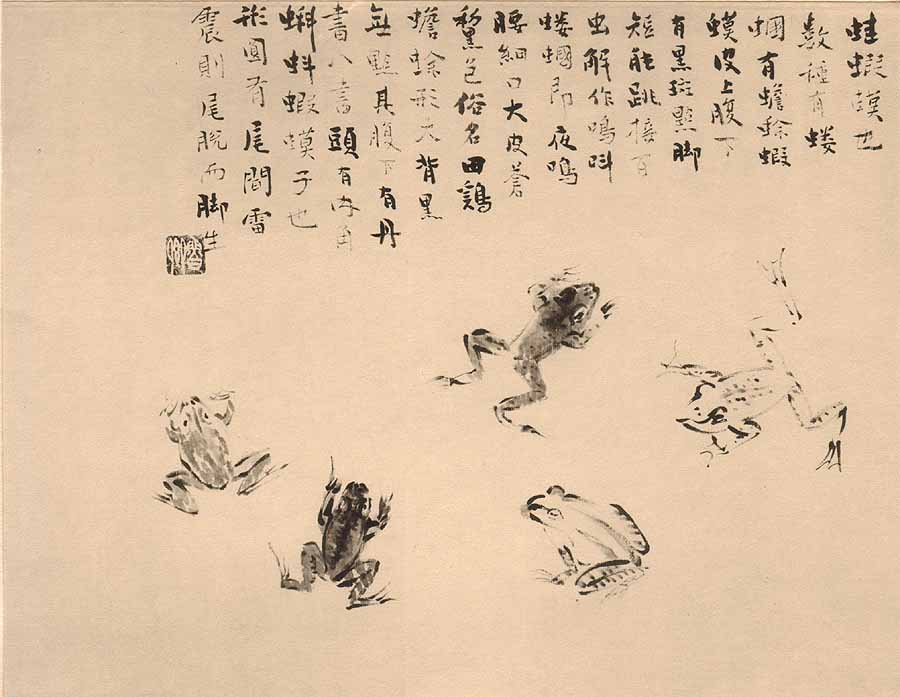 蛙蝦蟆也
數種有螻
蟈有蟾蜍蝦
蟆皮上腹下
有黑斑點脚
短能跳接百
虫解作鳴呌
螻蟈即夜鳴
腰細口大皮蒼
黧色俗名田鷄
蟾蜍形大背黑
無點其腹下有丹
書八書頭有肉角
蝌蚪蝦蟆子也
形圓有尾聞雷
震則尾脫而脚生